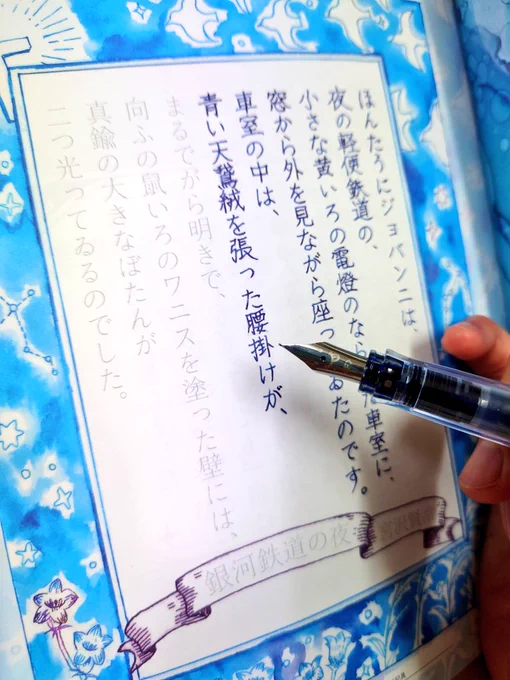 ほんたうにジョバンニは、
夜の軽便鉄道の、
小さな黄いろの電燈のなら 車室に、
窓から外を見ながら座っ ゐたのです。
車室の中は、
青い天鵞絨を張った腰掛けが、
まるでがら明きで、
向ふの鼠いろのワニスを塗った壁には、
真鍮の大きなぼたんが
二つ光ってゐるのでした。
銀河鉄道の夜 宮沢賢